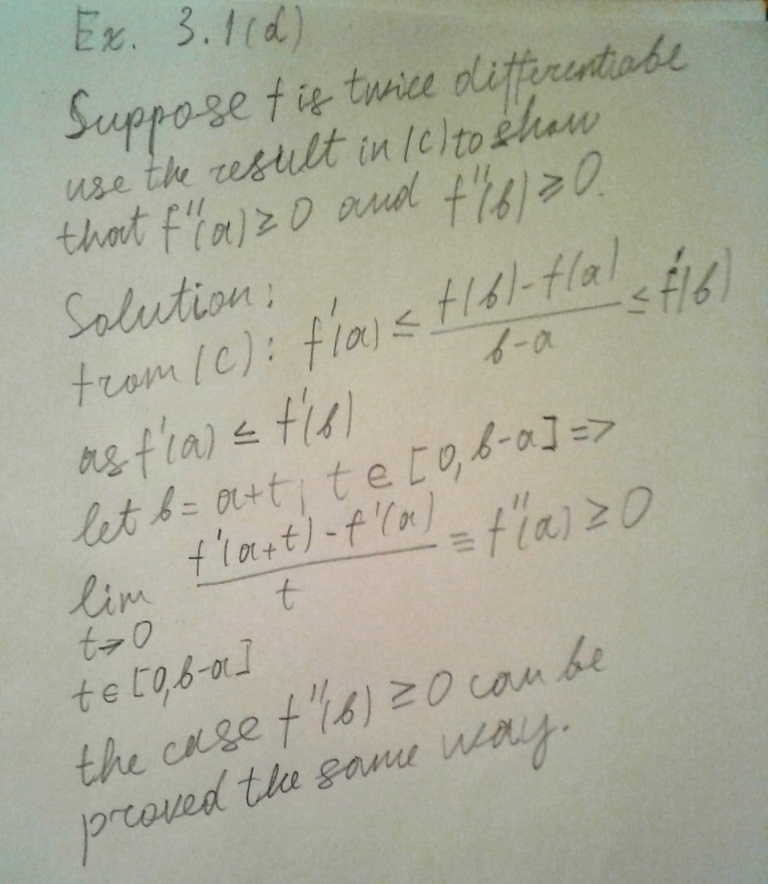 Ex. 3.1(d)
Suppose f is twice differentiabe
use the result in (c) to show
that f''(a) ≥ 0 and f''(b) ≥ 0.
Solution:
from (c): f'(a) ≤ \frac{f(b)-f(a)}{b-a} ≤ f'(b)
as f'(a) ≤ f'(b)
let b = a+t, t ∈ [0, b-a] =>
lim \frac{f'(a+t) - f'(a)}{t} ≡ f''(a) ≥ 0
t→0
t ∈ [0, b-a]
the case f''(b) ≥ 0 can be
proved the same way.